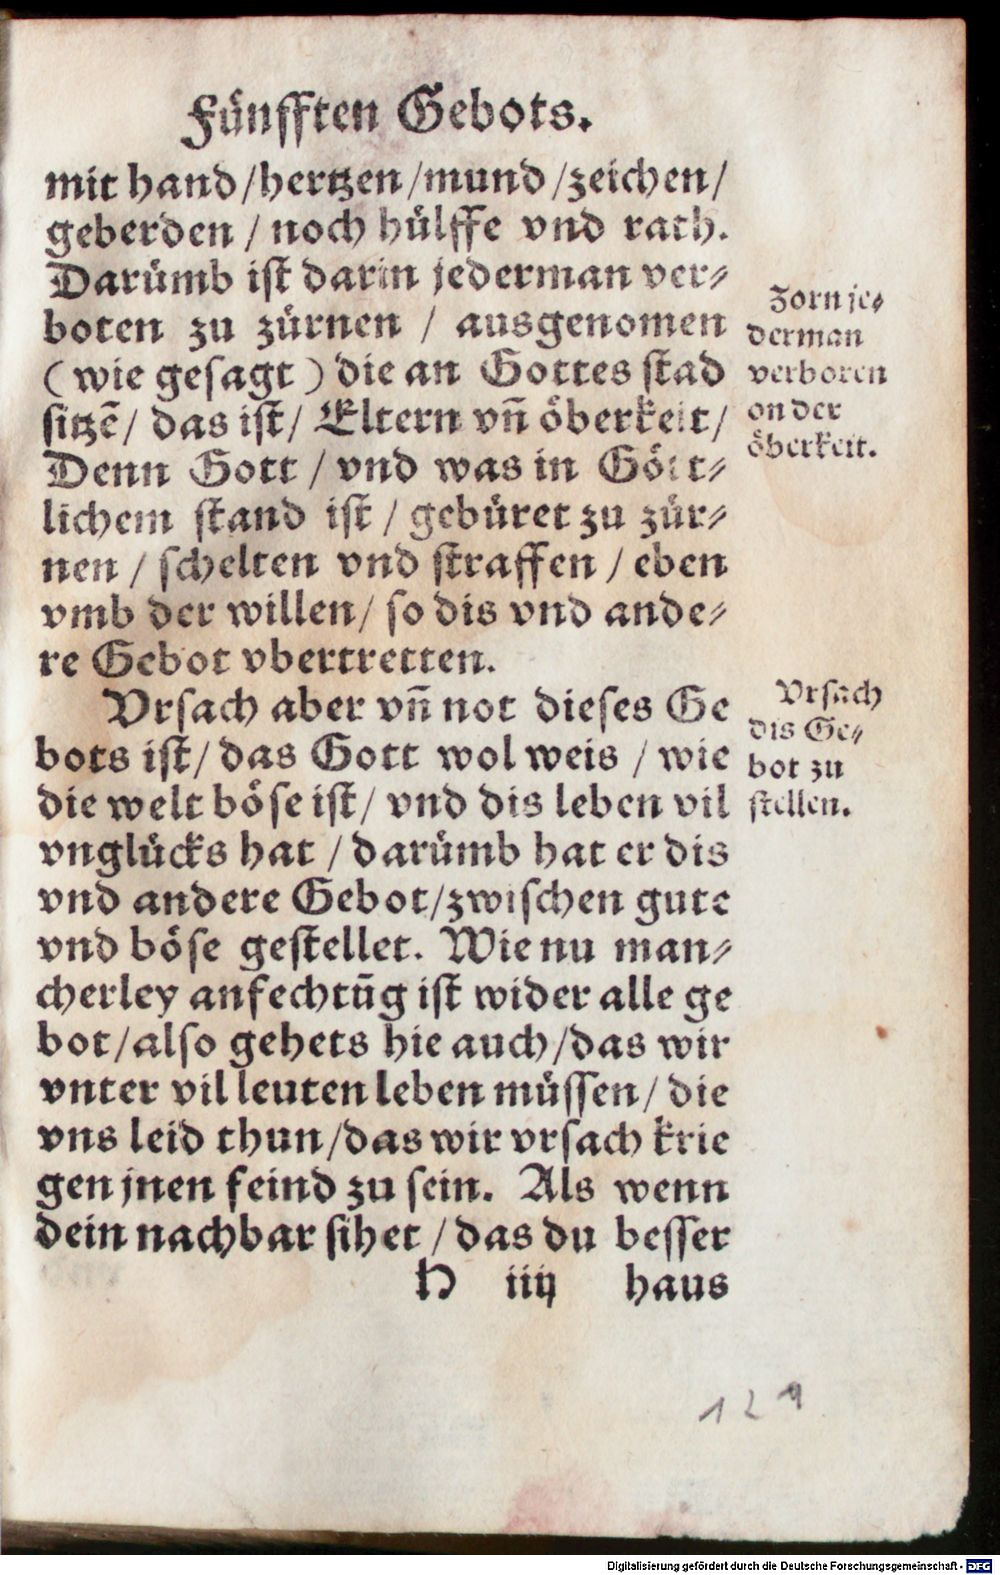 Fünfften Gebots.
mit hand/hertzen/mund/zeichen/
geberden / noch hülffe vnd rath.
Darümb ist darin jederman ver⸗
boten zu zürnen / ausgenomen
(wie gesagt) die an Gottes stad
sitzē/ das ist/ Eltern vn̄ öberkeit/
Denn Gott / vnd was in Gött⸗
lichem stand ist / gebüret zu zür⸗
nen / schelten vnd straffen / eben
vmb der willen/ so dis vnd ande⸗
re Gebot vbertretten.
Zorn je⸗
derman
verboten
on der
öberkeit.
Vrsach aber vn̄ not dieses Ge
bots ist/ das Gott wol weis / wie
die welt böse ist/ vnd dis leben vil
vnglücks hat / darümb hat er dis
vnd andere Gebot/zwischen gute
vnd böse gestellet. Wie nu man⸗
cherley anfechtūg ist wider alle ge
bot/also gehets hie auch/das wir
vnter vil leuten leben müssen/ die
vns leid thun/das wir vrsach krie
gen jnen feind zu sein. Als wenn
dein nachbar sihet / das du besser
Vrsach
dis Ge⸗
bot zu
stellen.
H iiij haus
129
Digitalisierung gefördert durch die Deutsche Forschungsgemeinschaft - DFG